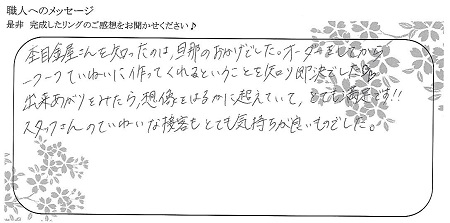 職人へのメッセージ
是非 完成したリングのご感想をお聞かせください♪
杢目金屋さんを知ったのは、旦那のおかげでした。オーダーをしてから
一つ一つていねいに作ってくれるということを知り即決でした
出来あがりをみたら、想像をはるかに超えていて、とても満足です!!
スタッフさんのていねいな接客もとても気持ちが良いものでした。